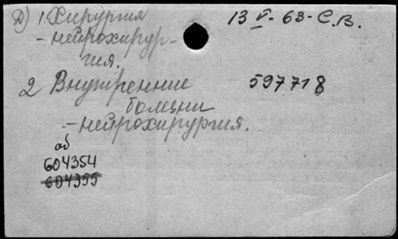 Д) 1. Хирургия
13 V- 63- С.В.
- нейрохирур-
гия.
2 Внутренние
597718
болезни
- нейрохирургия.
об
604354
604355